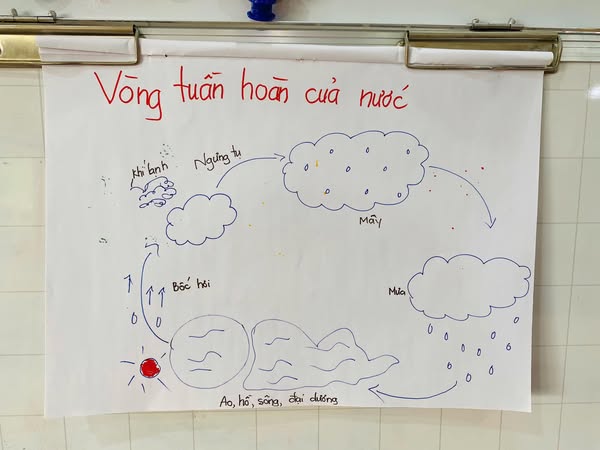 Vòng tuần hoàn của nước
Khí lạnh
Ngưng tụ
Mây
Bốc hơi
Mưa
Ao, hồ, sông, đại dương